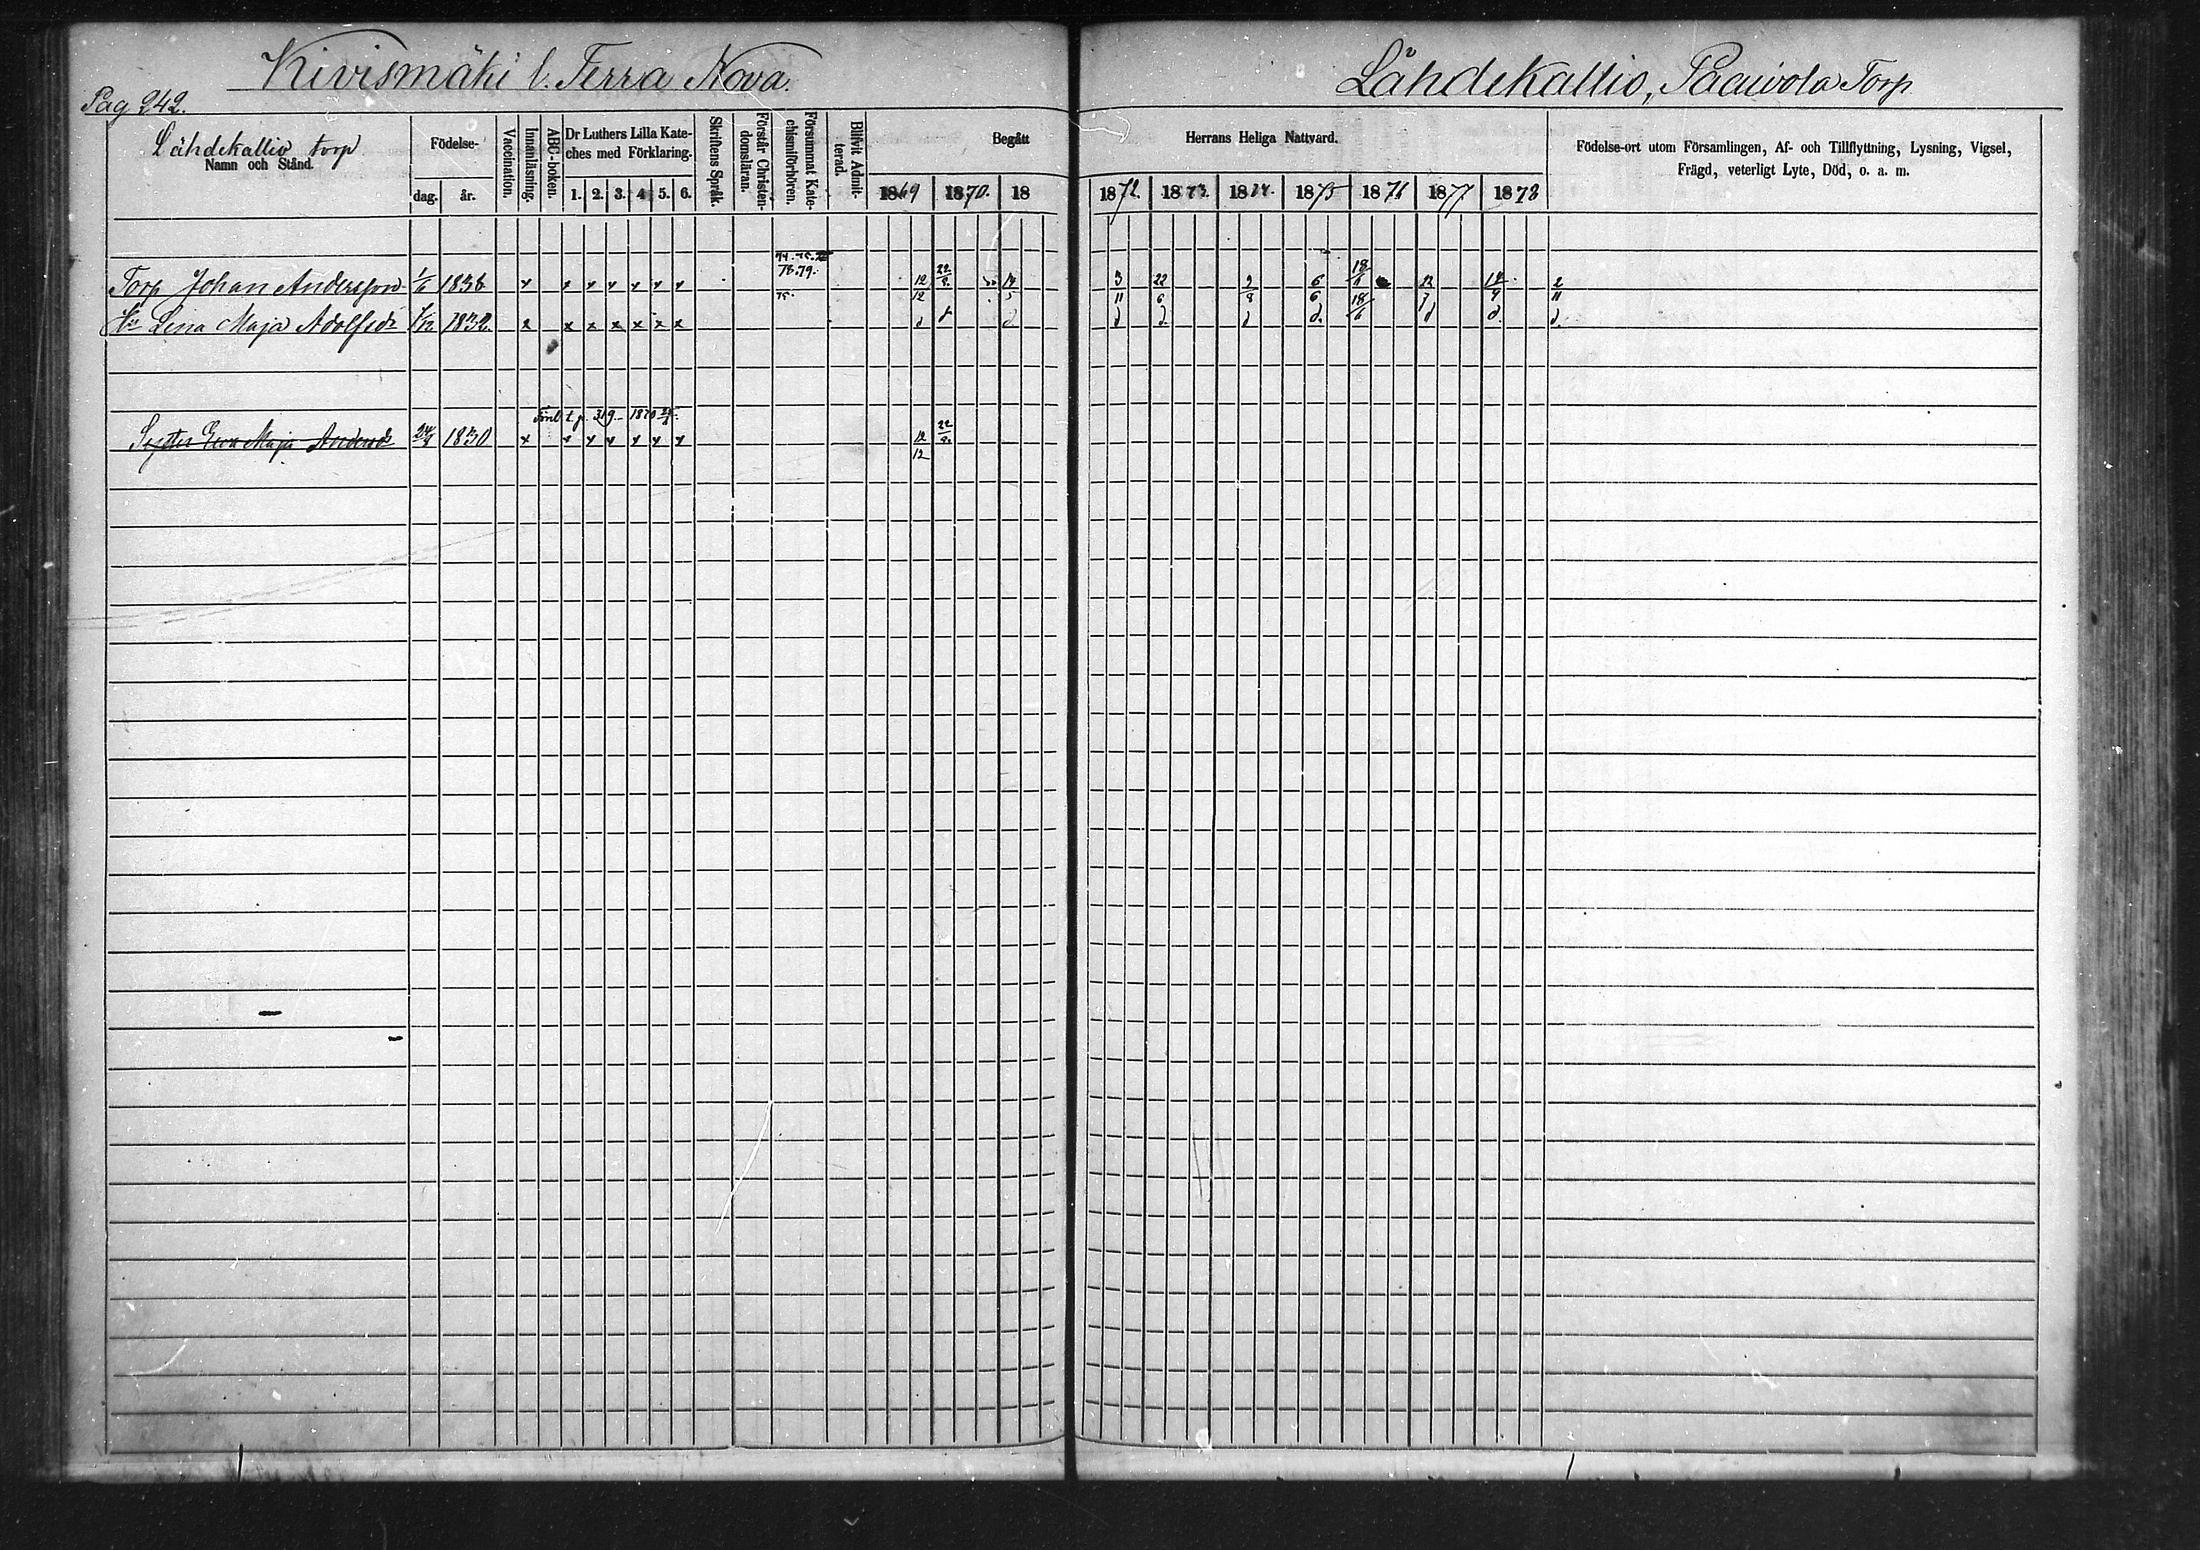 Kivismäki l. Terra Nova.
Lähdekallio, Paavola Torp
Pag 242.
Lähdekallio torp
Namn och Stånd.
Födelse-
dag. år.
Vaccination.
Innanläsning.
ABC-boken.
Dr Luthers Lilla Kate-
ches med Förklaring.
1. 2. 3. 4 5. 6.
Skriftens Språk.
Förstår Christen-
domsläran.
Försummat Kate-
chismiförhören.
Blifvit Admit-
terad.
Begått
1869 1870. 18
Herrans Heliga Nattvard.
1872. 1873. 1874. 1875 1876 1877 1878
Födelse-ort utom Församlingen, Af- och Tillflyttning, Lysning, Vigsel,
Frägd, veterligt Lyte, Död, o. a. m.
74. 75.
78. 79.
Torp Johan Andersson 1836 x x x x x x x 12 22 14 3 22 6 18 22 14 2
75. 12 5 11 6 9 6 18 7 9 11
Hu Lina Maja Adolfsdr 1832. x x x x x x x d d d d d d d d d
t. p. 319 1870
Syster Eva Maja Andersdr 24 1830 x x x x x x x 12 22
12